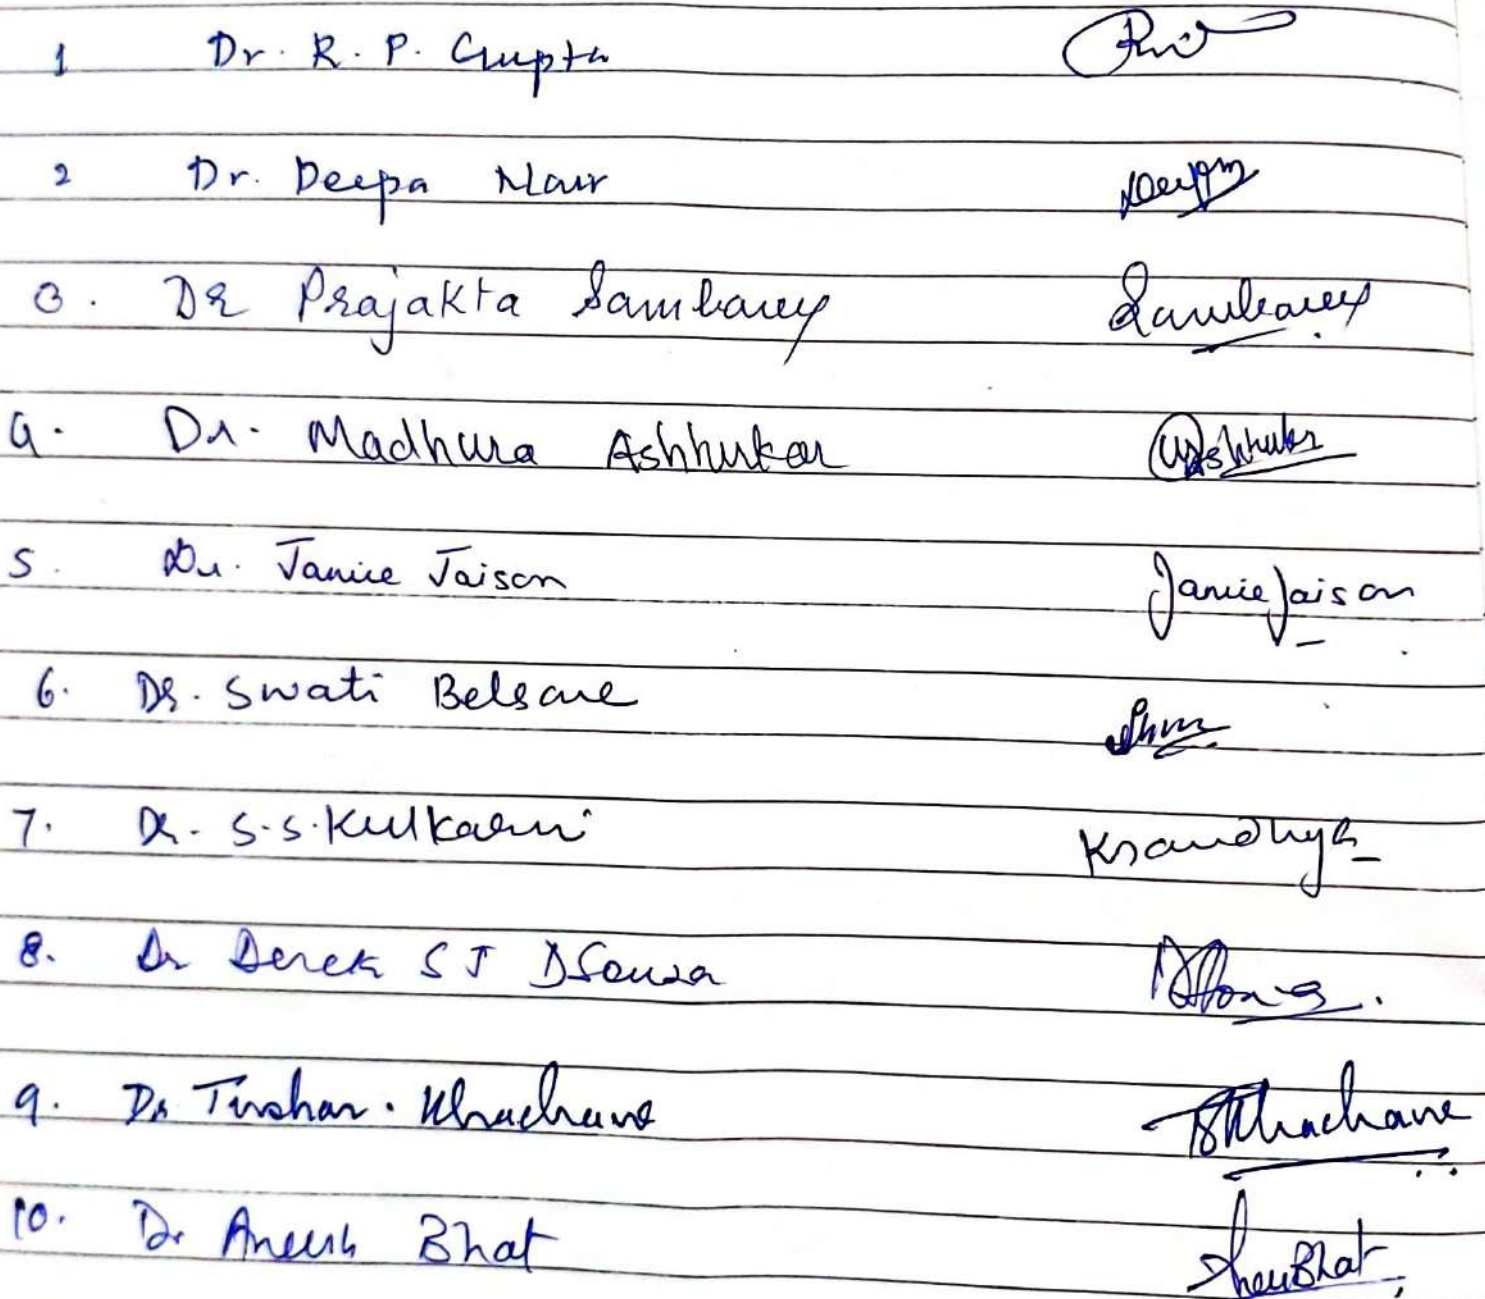 1 Dr. R. P. Gupta
2 Dr. Deepa Nair Deepa
3. DR Prajakta Sambarey Sambarey
4. Dr. Madhura Ashturkar
5. Dr. Janice Jaison Janice Jaison
6. DR. Swati Belsare
7. Dr. S.S. Kulkarni Ksandhya
8. Dr Derek S J DSouza
9. Dr Tushar. Khachane Khachane
10. Dr Aneesh Bhat Bhat